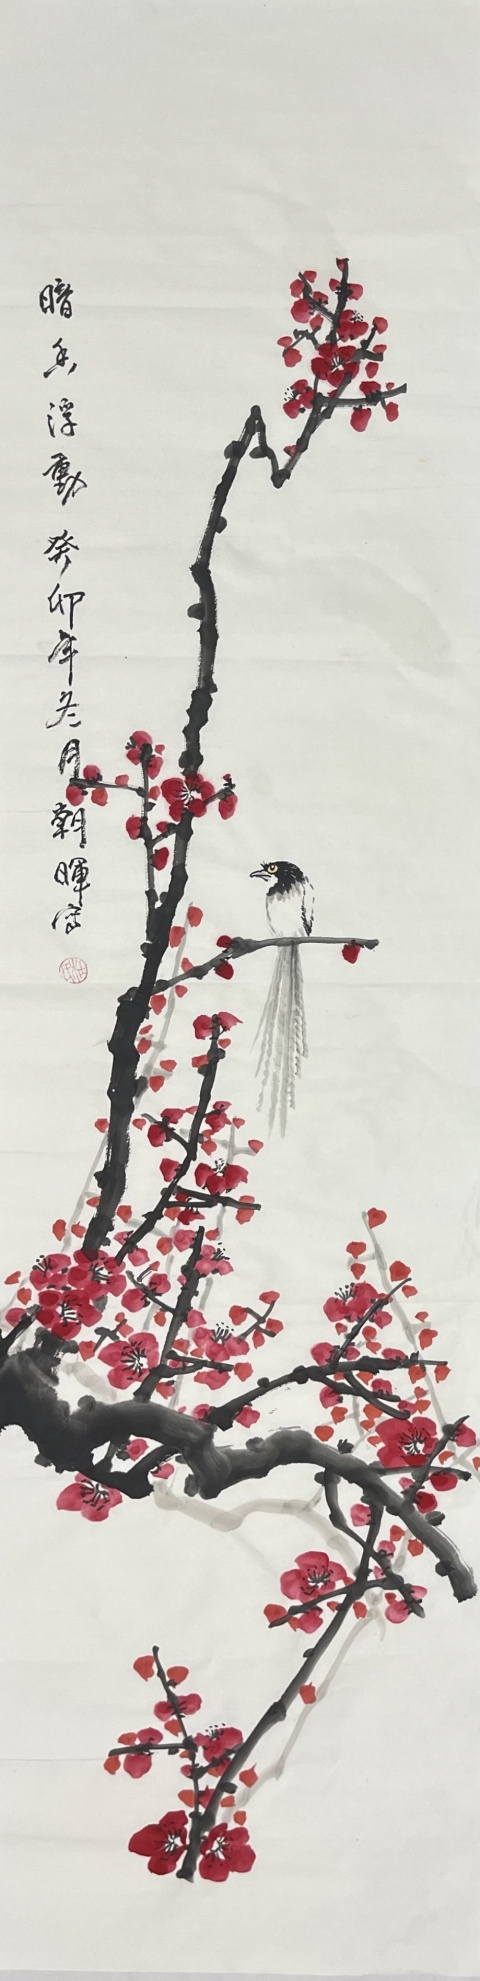 暗香浮動癸卯年冬月朝暉寫